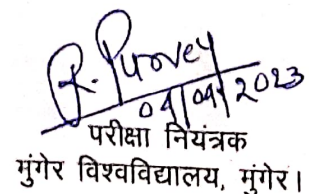 R. Purvey
04/09/2023
परीक्षा नियंत्रक
मुंगेर विश्वविद्यालय, मुंगेर।